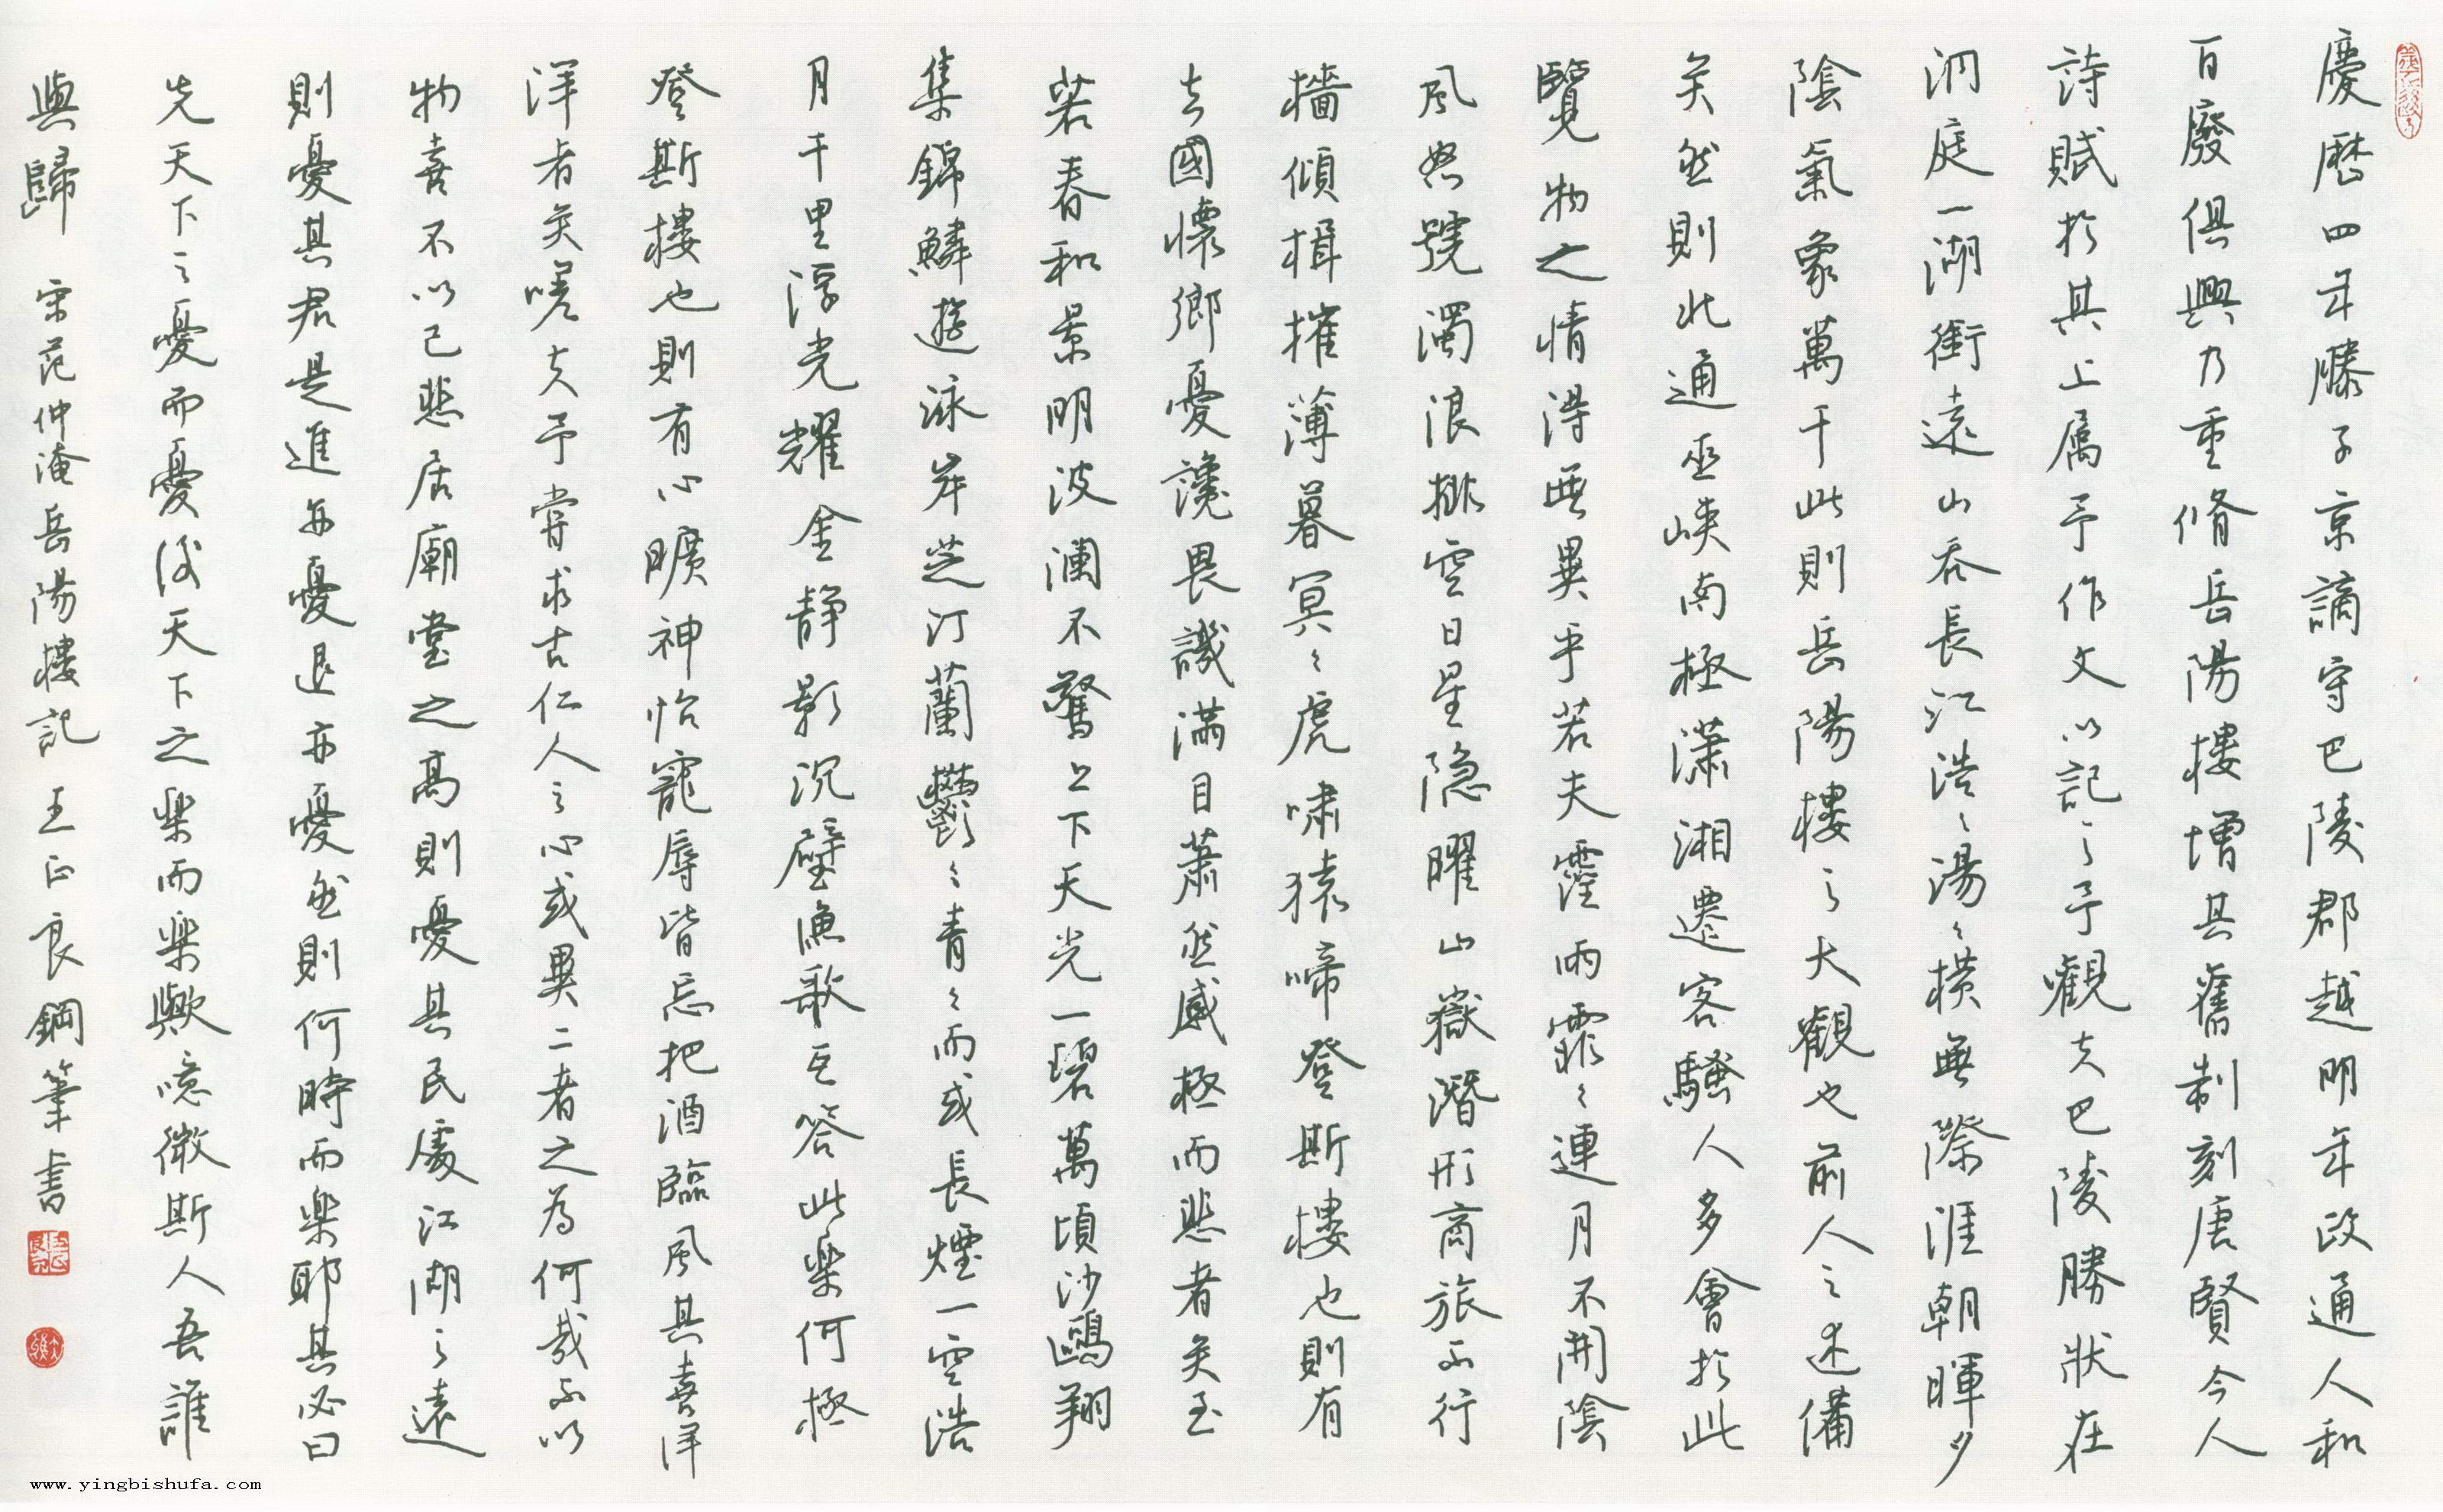 慶歷四年滕子京謫守巴陵郡越明年政通人和
百廢俱興乃重脩岳陽樓增其舊制刻唐賢今人
詩賦於其上属予作文以記之予觀夫巴陵勝狀在
洞庭一湖銜遠山吞長江浩〻湯〻橫無際涯朝暉夕
陰氣象萬千此則岳陽樓之大觀也前人之述備
矣然則北通巫峽南極瀟湘遷客騷人多會於此
覽物之情得無異乎若夫霪雨霏〻連月不開陰
風怒號濁浪排空日星隐曜山嶽潛形商旅不行
檣傾楫摧薄暮冥〻虎嘯猿啼登斯樓也則有
去國懷鄉憂讒畏譏滿目蕭然感極而悲者矣至
若春和景明波瀾不驚上下天光一碧萬頃沙鷗翔
集錦鱗遊泳岸芷汀蘭鬱〻青〻而或長煙一空浩
月千里浮光耀金静影沉璧漁歌互答此樂何極
登斯樓也則有心曠神怡寵辱皆忘把酒臨風其喜洋
洋者矣嗟夫予嘗求古仁人之心或異二者之為何哉不以
物喜不以己悲居廟堂之高則憂其民處江湖之遠
則憂其君是進亦憂退亦憂然則何時而樂耶其必曰
先天下之憂而憂後天下之樂而樂歟噫微斯人吾誰
與歸 宋范仲淹岳陽樓記 王正良鋼筆書
www.yingbishufa.com